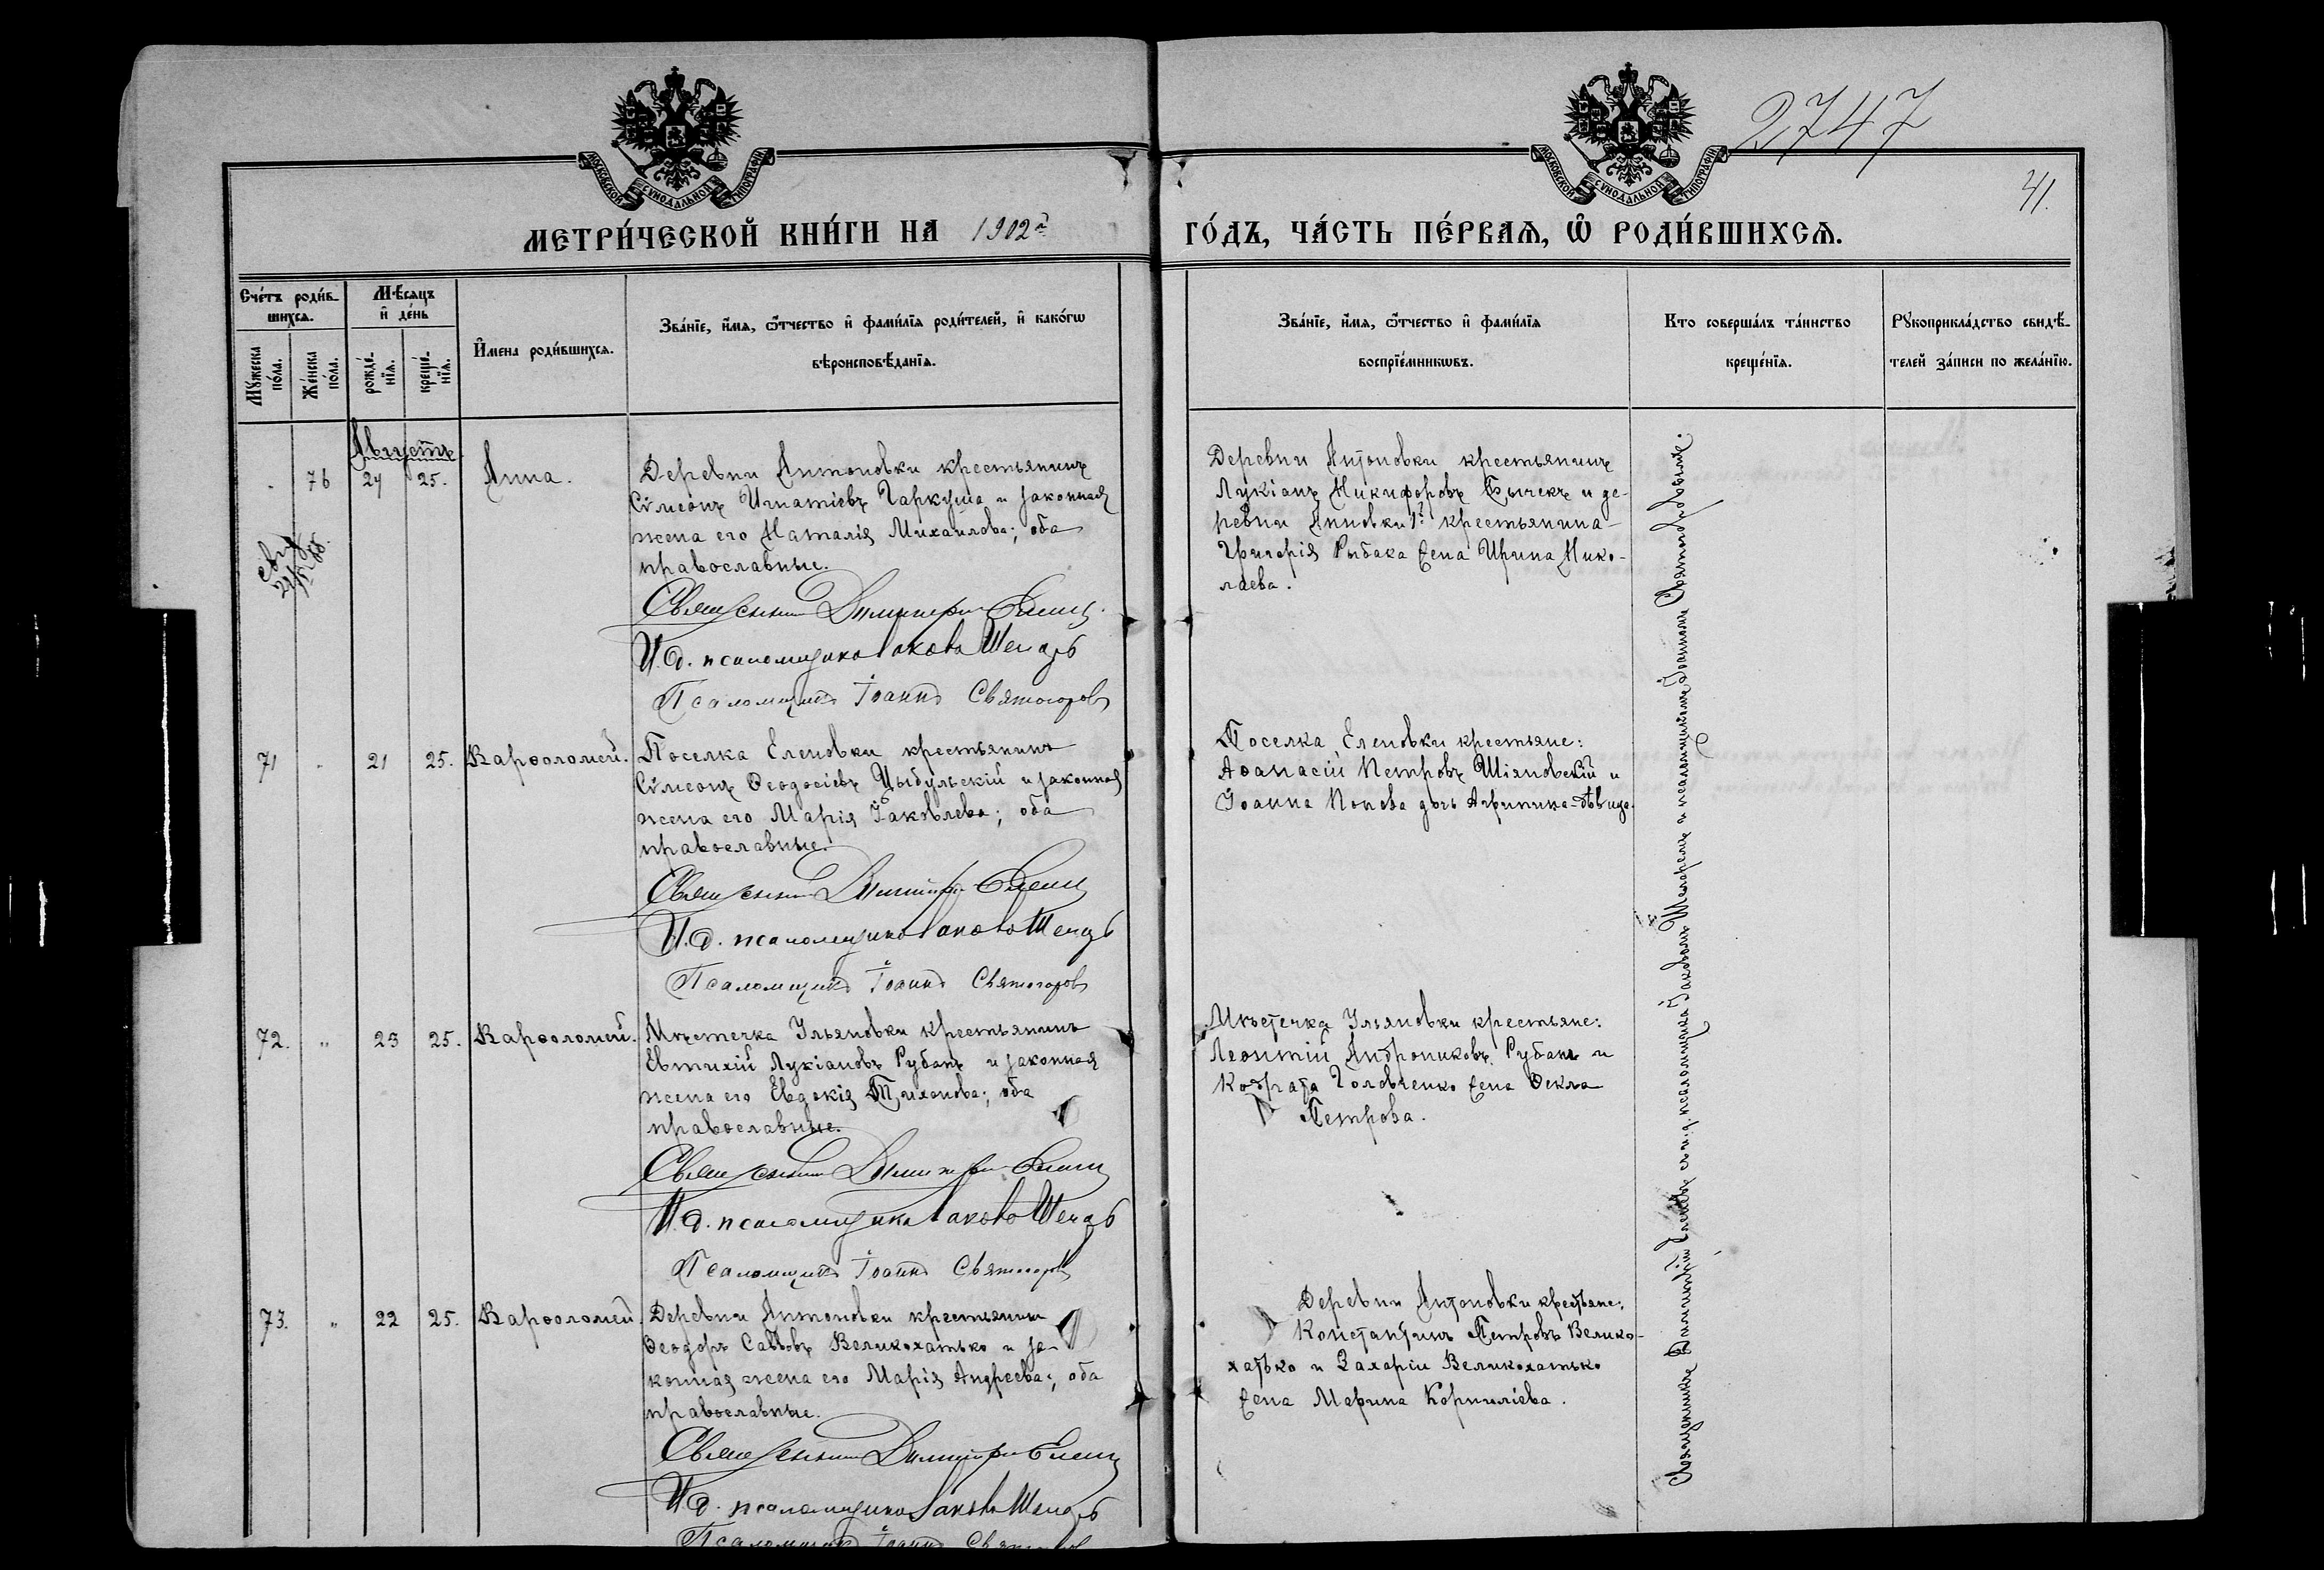 2747
41.
МОСКОВСКОЙ СУНОДАЛЬНОЙ ТИПОГРАФІИ
МОСКОВСКОЙ СУНОДАЛЬНОЙ ТИПОГРАФІИ
МЕТРИ́ЧЕСКОЙ КНИ́ГИ НА 1902й
ГО́ДЪ, ЧА́СТЬ ПЕ́РВАѦ, Ѡ РОДИ́ВШИХСѦ.
Сче́тъ роди́в-
шихсѧ.
Мꙋ́жеска
по́ла.
Же́нска
по́ла.
Мѣ́сѧцъ
и҆ де́нь
рожде́-
нїѧ.
креще́-
нїѧ.
И҆мена роди́вшихсѧ.
Зва́нїе, и҆́мѧ, ѻ҆́тчество и҆ фами́лїѧ роди́телей, и҆ како́гѡ
вѣроисповѣ́данїѧ.
Зва́нїе, и҆́мѧ, ѻ҆́тчество и҆ фами́лїѧ
воспрїе́мникѡвъ.
Кто соверша́лъ та́инство
креще́нїѧ.
Рꙋкоприкла́дство свидѣ́-
телей за́писи по жела́нїю.
Августъ.
76 24 25. Анна.
Деревни Антоновки крестьянинъ
Сѵмеонъ Игнатіевъ Гаркуша и законная
жена его Наталія Михаилова; оба
православные.
Священникъ Димитрій Елецъ
И. д. псаломщика Іаковъ
Псаломщикъ Іоаннъ Святогоровъ
Деревни Антоновки крестьянинъ
Лукіанъ Никифоровъ Бычекъ и де-
ревни Анновки 1й крестьянина
Григорія Рыбака жена Ирина Нико-
лаева.
71 21 25. Варѳоломей.
Поселка Еленовки крестьянинъ
Сѵмеонъ Ѳеодосіевъ Цыбульскій и законная
жена его Марія Іаковлева; оба
православные.
Священникъ Димитрій Елецъ
И. д. псаломщика Іаковъ
Псаломщикъ Іоаннъ Святогоровъ
Поселка Еленовки крестьяне:
Аѳанасій Петровъ Шіяновскій и
Іоанна Попова дочь Агрипина-дѣвица.
72. " 23 25. Варѳоломей.
Мѣстечка Ульяновки крестьянинъ
Евтихій Лукіановъ Рубанъ и законная
жена его Евдокія Тихонова; оба
православные.
Священникъ Димитрій Елецъ
И. д. псаломщика Іаковъ
Псаломщикъ Іоаннъ Святогоровъ
Мѣстечка Ульяновки крестьяне:
Леонтій Андрониковъ Рубанъ и
Кодрата Головченко жена Ѳекла
Петрова.
73. " 22 25. Варѳоломей.
Деревни Антоновки крестьянинъ
Ѳеодоръ Саввовъ Великохатько и за-
конная жена его Марія Андреева; оба
православные.
Священникъ Димитрій Елецъ
И. д. псаломщика Іаковъ
Псаломщикъ Іоаннъ
Деревни Антоновки крестьяне:
Константинъ Петровъ Велико-
хатько и Захаріи Великохатько
жена Марина Корниліева.
Священникъ Димитрій Елецъ съ и. д. псаломщика Іаковомъ и псаломщикомъ Іоанномъ Святогоровымъ.